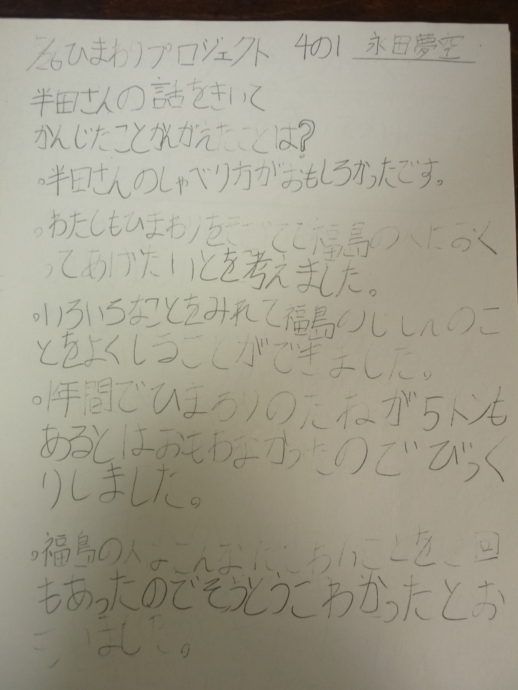 7/26ひまわりプロジェクト 4の1 永田夢空
半田さんの話をきいて
かんじたことかんがえたことは?
。半田さんのしゃべり方がおもしろかったです。
。わたしもひまわりをそだてて福島の人におく
ってあげたいとを考えました。
。いろいろなことをみれて福島のししんのこ
とをよくしることができました。
。1年間でひまわりのたねが5トンも
あるとはおもわなかったのでびっく
りしました。
。福島の人はこんなに ことを 回
もあったのでそうとうこわかったとお
ました。